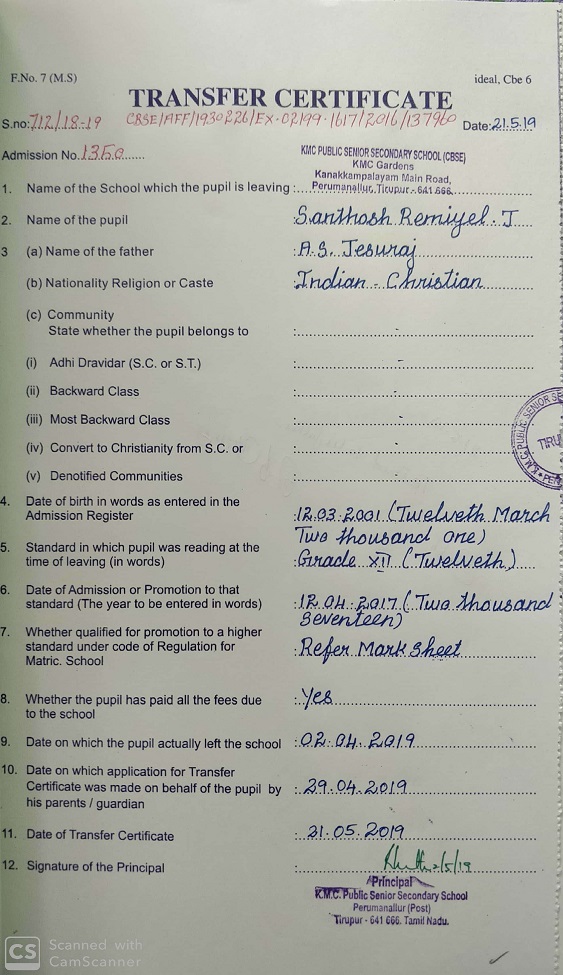 F.No. 7 (M.S) ideal, Cbe 6
TRANSFER CERTIFICATE
S.no: 712/18-19 CBSE/AFF/1930226/EX-02199-1617/2016/137960 Date: 21.5.19
Admission No. 1350
KMC PUBLIC SENIOR SECONDARY SCHOOL (CBSE)
KMC Gardens
Kanakkampalayam Main Road,
1. Name of the School which the pupil is leaving : Perumanallur, Tirupur - 641 666.
2. Name of the pupil : Santhosh Remiyel. J
3 (a) Name of the father : A.S. Jesuraj
(b) Nationality Religion or Caste : Indian - Christian
(c) Community
State whether the pupil belongs to : -
(i) Adhi Dravidar (S.C. or S.T.) : -
(ii) Backward Class : -
(iii) Most Backward Class : -
(iv) Convert to Christianity from S.C. or : -
(v) Denotified Communities : -
K.M.C. PUBLIC SENIOR SE
TIRU
4. Date of birth in words as entered in the
Admission Register : 12.03.2001 (Twelveth March
Two thousand one)
5. Standard in which pupil was reading at the
time of leaving (in words) : Grade XII (Twelveth)
6. Date of Admission or Promotion to that
standard (The year to be entered in words) : 12.04.2017 (Two thousand
seventeen)
7. Whether qualified for promotion to a higher
standard under code of Regulation for : Refer Mark Sheet
Matric. School
8. Whether the pupil has paid all the fees due : Yes
to the school
9. Date on which the pupil actually left the school : 02.04.2019
10. Date on which application for Transfer
Certificate was made on behalf of the pupil by : 29.04.2019
his parents / guardian
11. Date of Transfer Certificate : 21.05.2019
12. Signature of the Principal :
Principal
K.M.C. Public Senior Secondary School
Perumanallur (Post)
Tirupur - 641 666. Tamil Nadu.
CS Scanned with
CamScanner